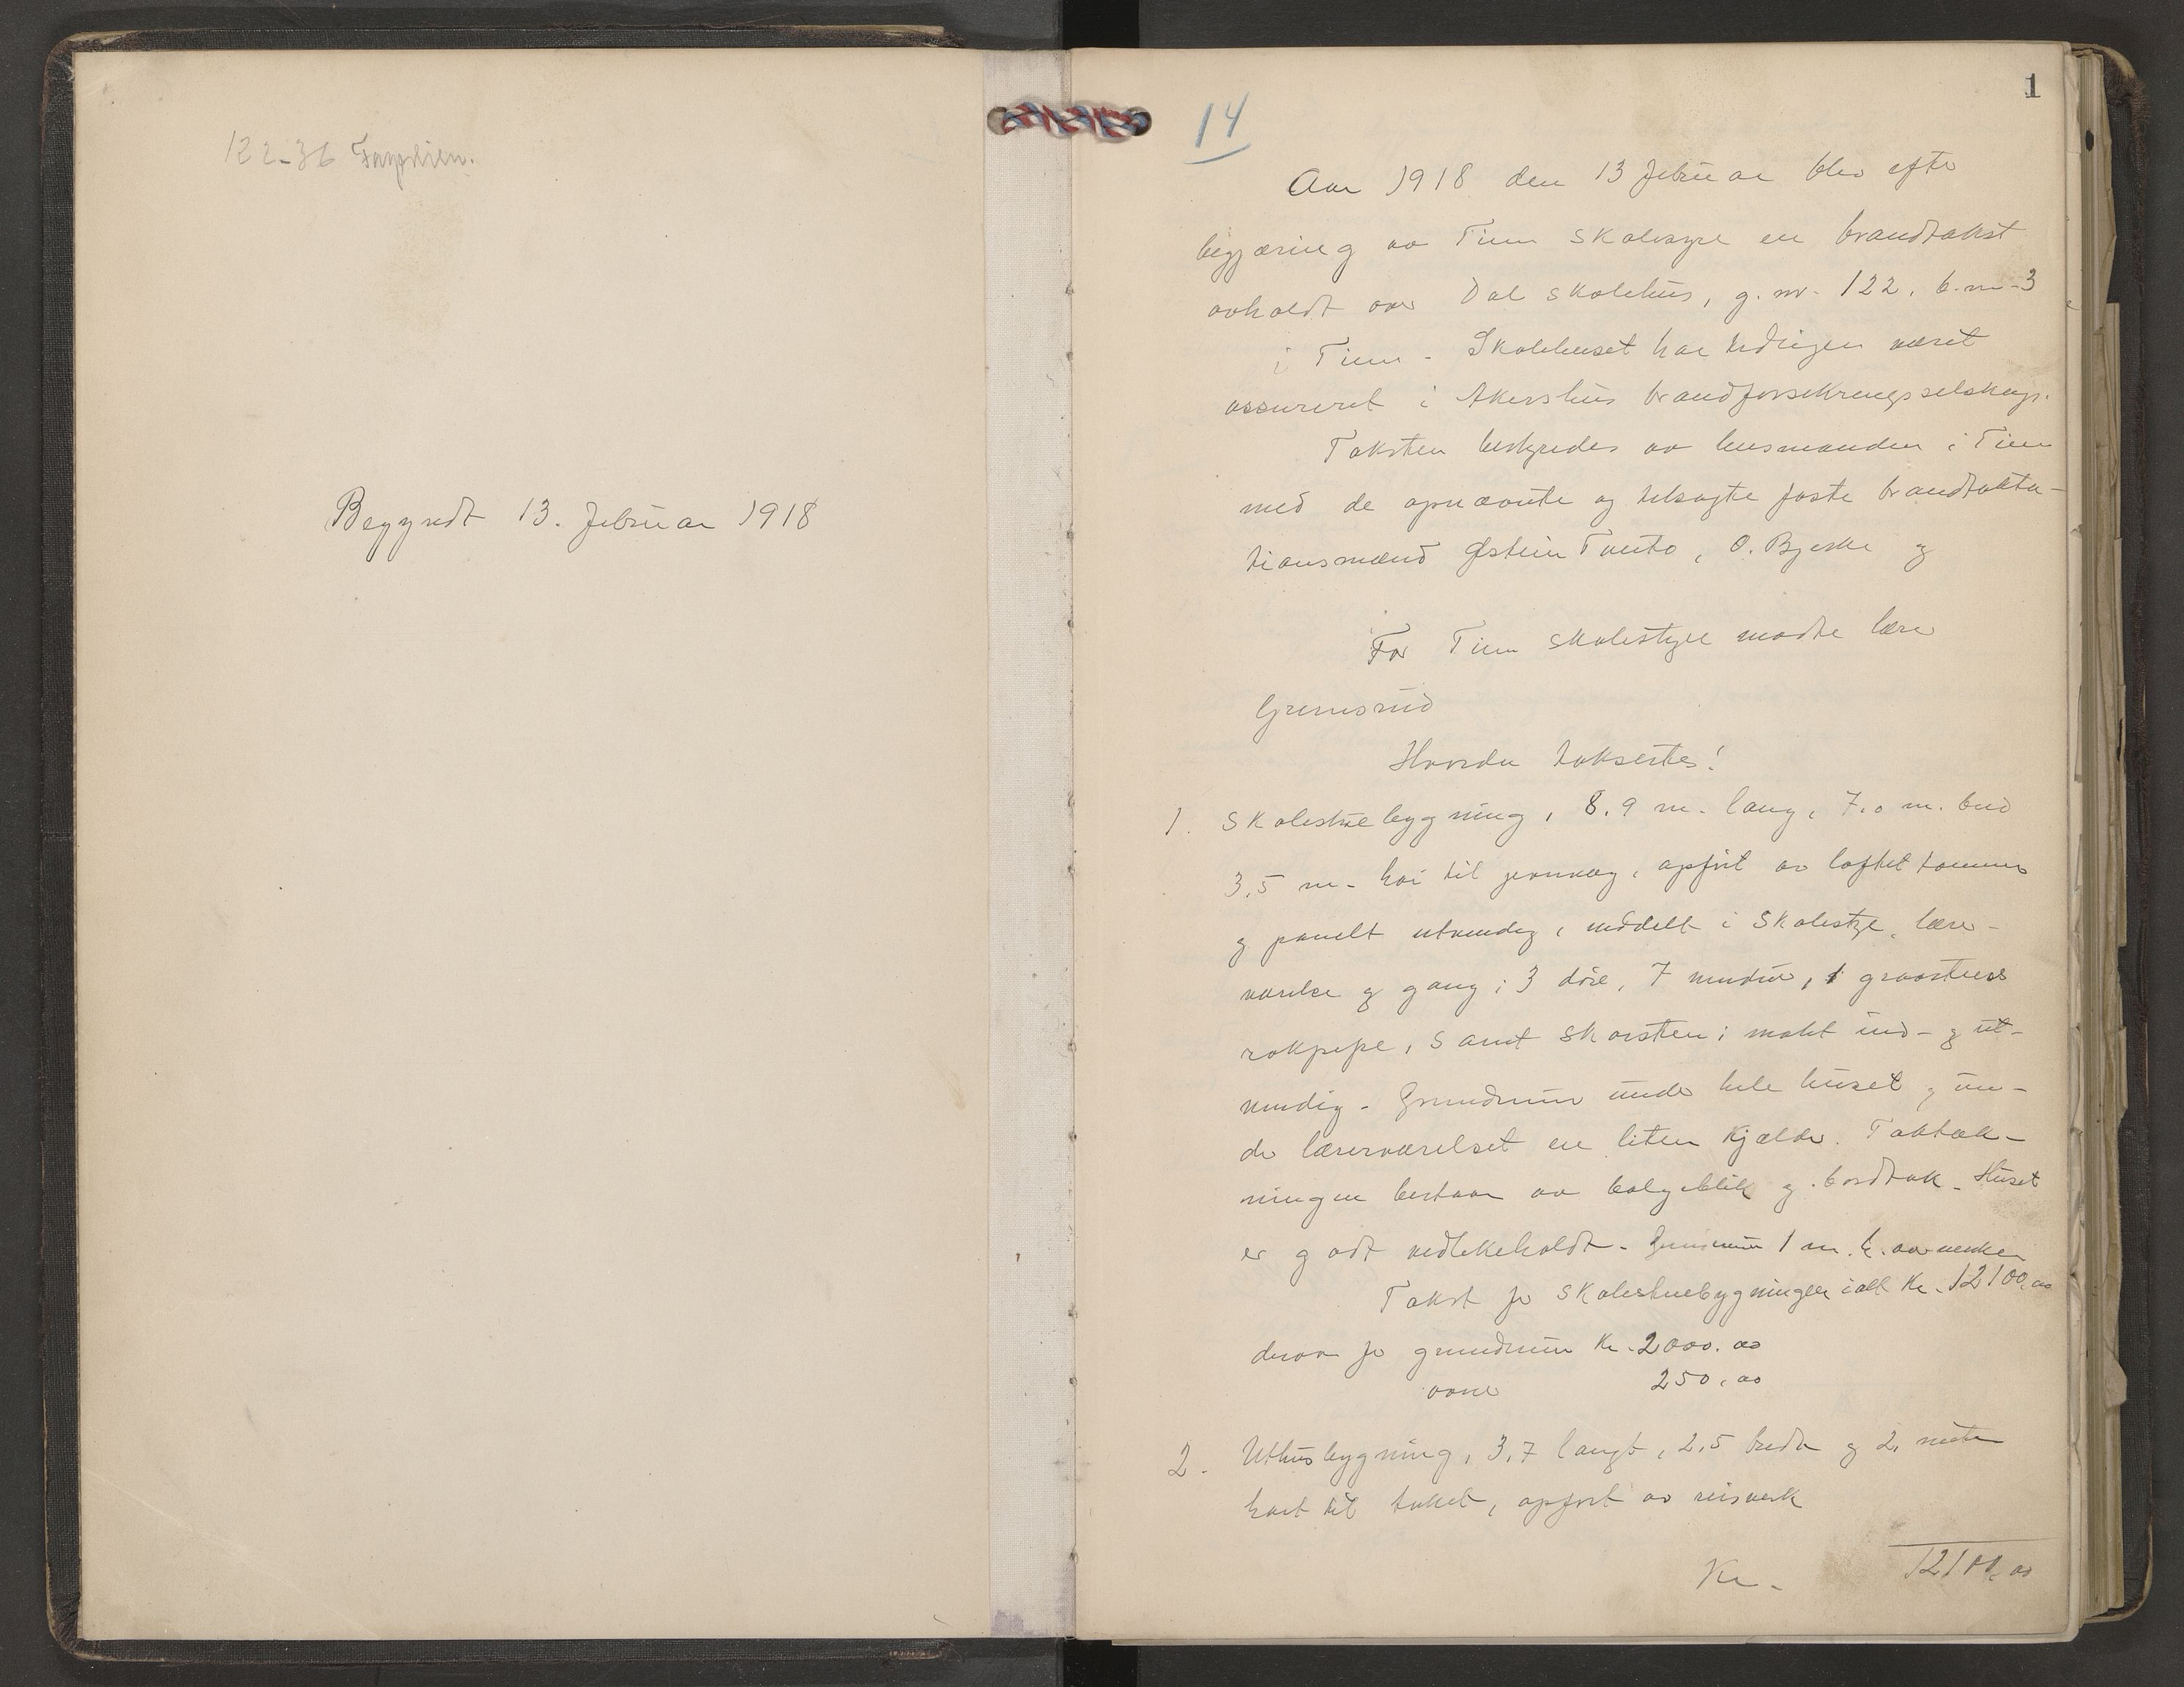 122-36
Begyndt 13. Februar 1918
1
14
Aar 1918 den 13 Februar blev efter
begjæring av Tinn Skolestyre en brandtakst
avholdt over Dal skolehus, g. nr. 122, b. nr. 3
i Tinn. Skolehuset har tidligere været
assureret i Akershus brandforsikringsselskap.
Taksten bestyredes av lensmanden i Tinn
med de opnævnte og tilsagte faste brandtaksta-
tionsmænd Østein Tveito, O. Bjerke og
For Tinn skolestyre mødte lærer
Grimsrud
Hvorda takseertes:
1. Skolestuebygning, 8.9 m. lang, 7.0 m. bred
3,5 m. høi til , opført av laftet tømmer
og panelt utvendig, inddelt i Skolestue, lærer-
værelse og gang; 3 døre, 7 vinduer, 1 graastens
røkpipe, samt skorsten; malt ind- og ut-
vendig. Grundmur under hele huset og un-
der lærerværelset en liten kjælder. Taktæk-
ningen bestaar av bølgeblik og bordtak. Huset
er godt vedlikeholdt. Grundmur 1 m. h.
Takst for Skolestuebygningen ialt Kr. 12100,00
derav for grundmur Kr. 2000.00
ovne 250,00
2. Uthusbygning, 3,7 langt, 2,5 bredt og 2, meter
høit til taket, opført av reisverk
Kr. 12100,00